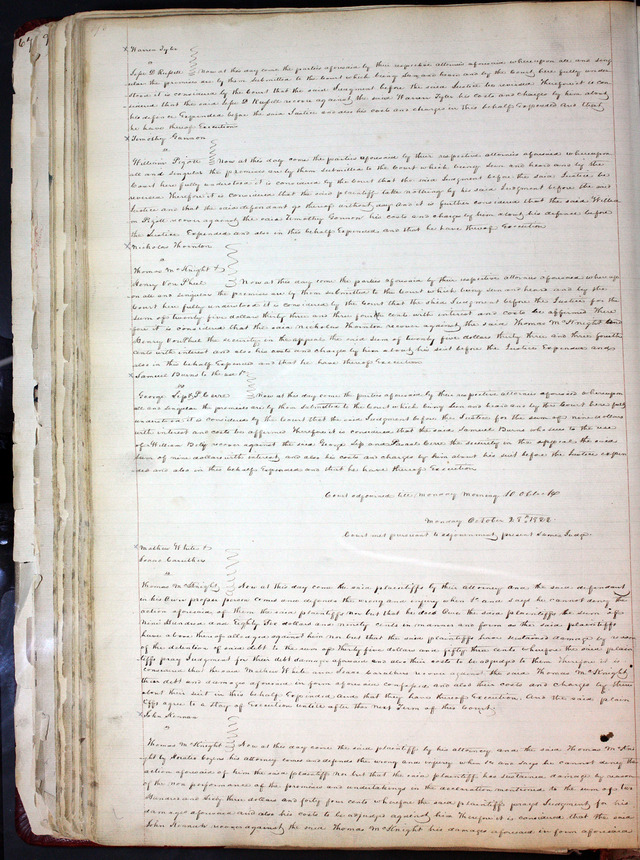 Warren Tyler
"
Sipe D Russell Now at this day come the parties aforesaid by their respective attornies aforesaid whereupon all and sing
ular the premises are by them submitted to the Court which being seen and heard and by the Court here fully under
stood it is considered by the Court that the said Judgment before the said Justice be reversed Therefore it is con
sidered that the said D Russell recover against the said Warren Tyler his costs and charges by him about
his defence Expended before the said Justice and also his costs and charges in this behalf Expended And that
he have thereof Execution
Timothy Gannon
"
William Pizoll Now at this day come the parties aforesaid by their respective attornies aforesaid whereupon
all and singular the premises are by them submitted to the Court which being Seen and heard and by the
Court here fully understood it is considered by the Court that the said Judgment before the said Justice be
reversed Therefore it is considered that the said plaintiff take nothing by his said Judgment before the said
Justice and that the said defendant go thereof without day And it is further considered that the said William
Pizoll recover against the said Timothy Gannon his costs and charges by him about his defence before
the Justice Expended and also in this behalf Expended and that he have thereof Execution
Nicholas Thornton
"
Thomas McKnight &
Henry Von Phul Now at this day come the parties aforesaid by their respective attornies aforesaid whereup
on all and singular the premises are by them submitted to the Court which being seen and heard and by the
Court here fully understood it is considered by the Court that the said Judgment before the Justice for the
sum of twenty five dollars thirty three and three fourth cents with interest and costs be affirmed There
fore it is considered that the said Nicholas Thornton recover against the said Thomas McKnight and
Henry Von Phul the security in the appeal the said sum of twenty five dollars thirty three and three fourth
cents with interest and also his costs and charges by him about his suit before the Justice Expended and
also in this behalf Expended and that he have thereof Execution
Samuel Burns to the use &c
vs
George Sip & P. Cerre Now at this day come the parties aforesaid by their respective attornies aforesaid whereupon
all and singular the premises are by them submitted to the Court which being seen and heard and by the Court here fully
understood it is considered by the Court that the said Judgment before the Justice for the sum of nine dollars
with interest and costs be affirmed Therefore it is considered that the said Samuel Burns who sues to the use
of William recover against the said George Sip and Pascal Cerre the security in the appeal the said
sum of nine dollars with interest and also his costs and charges by him about his suit before the Justice expen
ded and also in this behalf Expended and that he have thereof Execution
Court adjourned till Monday Morning 10 Oclock
Monday October 28th 1822
Court met pursuant to adjournment, present same Judge
Mathew White &
Isaac Carrithers
"
Thomas McKnight Now at this day come the said plaintiffs by their Attorney and the said defendant
in his own proper person comes and defends the wrong and injury when &c and says he cannot deny the
action aforesaid of them the said plaintiffs nor but that he does Owe the said plaintiffs the sum of
Nine Hundred and Eighty Six dollars and ninety cents in manner and form as the said plaintiffs
have above thereof alledged against him nor but that the said plaintiffs have sustained damages by reason
of the detention of said debt to the sum of Thirty five dollars and fifty three cents wherefore the said plain
tiffs pray Judgment for their debt damages aforesaid and also their costs to be adjudged to them Therefore it is
considered that the said Mathew White and Isaac Carrithers recover against the said Thomas McKnight
their debt and damages aforesaid in form aforesaid confessed, and also their costs and charges by them
about their suit in this behalf Expended And that they have thereof Execution. And the said plain
tiffs agree to a Stay of Execution untill after the next Term of this Court
John
"
Thomas McKnight Now at this day come the said plaintiff by his attorney and the said Thomas McKni
ght by Horatio Cozens his attorney comes and defends the wrong and injury when &c and says he cannot deny the
action aforesaid of him the said plaintiff nor but that the said plaintiff has sustained damage by reason
of the non performance of the promises and undertakings in the declaration mentioned to the sum of two
Hundred and Sixty three dollars and forty four cents wherefore the said plaintiff prays Judgment for his
damages aforesaid and also his costs to be adjudged against him Therefore it is considered that the said
John recover against the said Thomas McKnight his damages aforesaid in form aforesaid